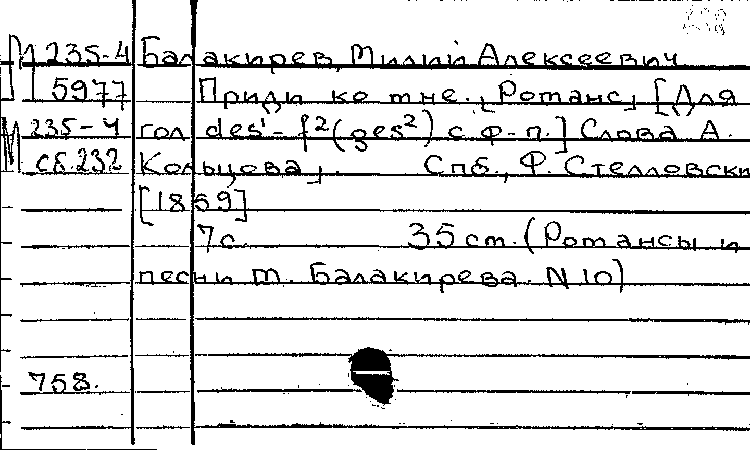 М 235-4 Балакирев, Милий Алексеевич
5977 Приди ко мне. Романс, [Для
М 235-4 гол des¹-f²(ges²) с ф-п.] Слова А.
сб.232 Кольцова. Спб., Ф. Стелловски
[1859]
7с. 35 cm. (Романсы и
песни М. Балакирева. N 10)
758.